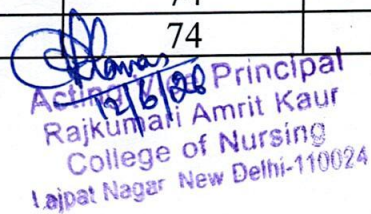 74
12/6/20
Acting Principal
Rajkumari Amrit Kaur
College of Nursing
Lajpat Nagar New Delhi-110024